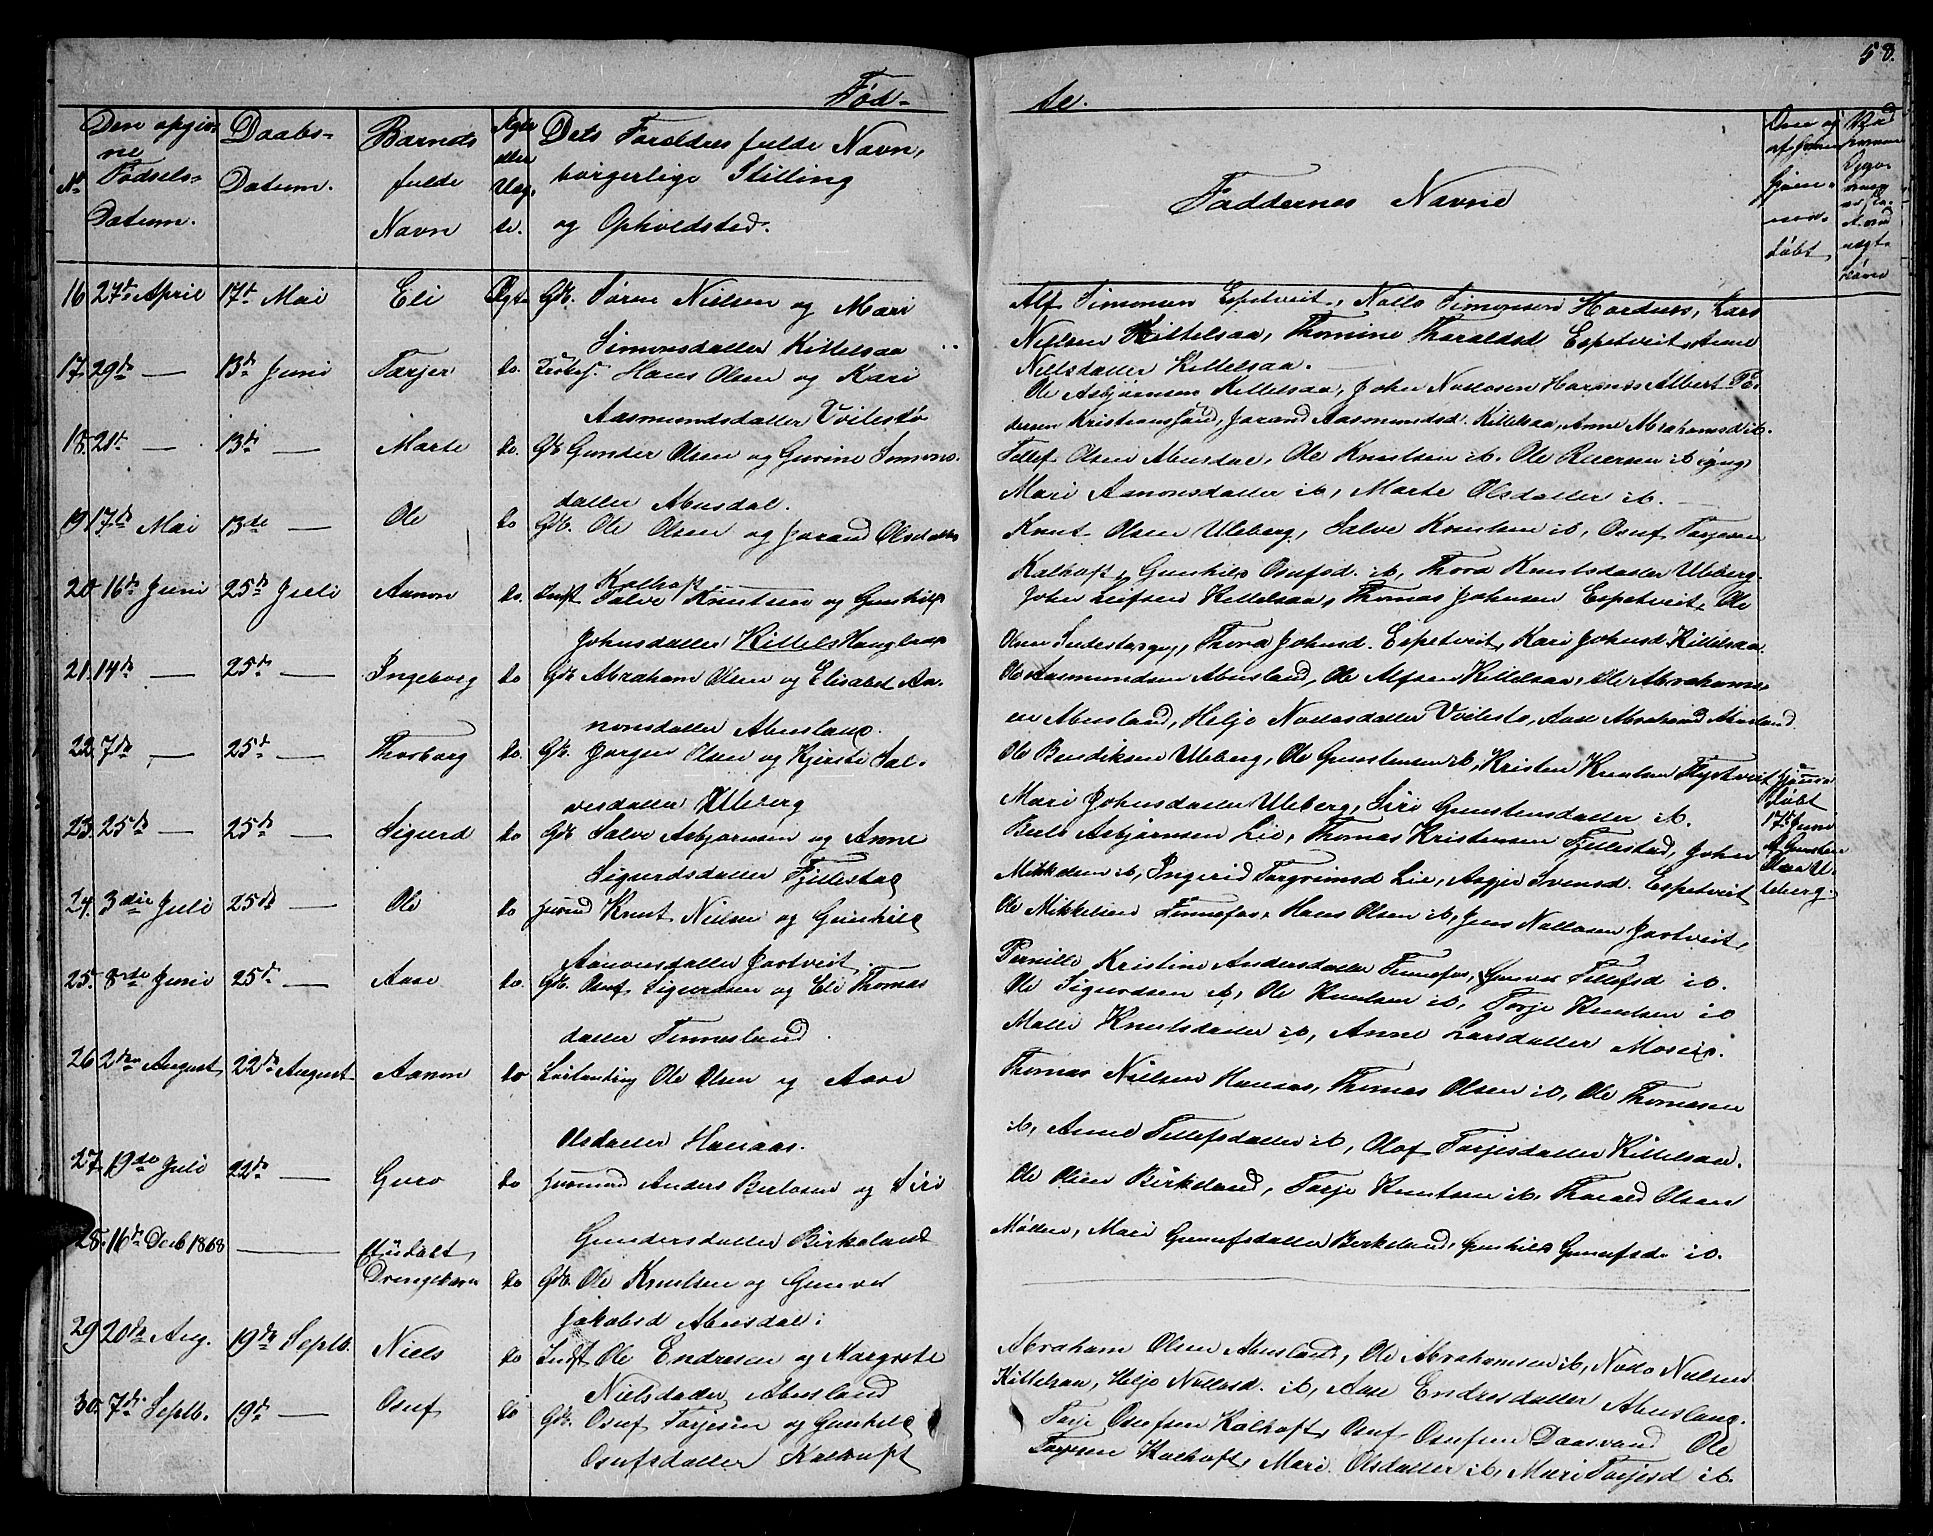 58.
Fød- te.
No
Den opgivne Fødsels-Datum.
Daabs-Datum.
Barnets fulde Navn
Ægte eller Uægte.
Dets Forældres fulde Navn, borgerlige Stilling og Opholdsted.
Faddernes Navne
16 27de April 17de Mai Eli Ægte Gdb. Søren Nielsen og Mari
Simonsdatter Kittelsaa
Alf Simonsen Espetveit, Nollo Simonsen Hordnes, Kari
Nielsen Kittelsaa, Thomine Tharaldsd Espetveit, Anne
Nielsdatter Kittelsaa.
17. 29de — 13de Juni Tarjer do. Hans Olsen og Kari
Aasmundsdatter Voilestø
Ole Asbjørnsen Kittelsaa, John Nollosen Albert
Kristianssand, Jorand Aasmundsd. Kittelsaa, Anne Abrahamsd ib.
18. 21de — 13de — Marte do. Gdb Gunder Olsen og Gurine Simons-
datter Abusdal.
Tellef Olsen Abusdal, Ole Knutsen ib. Ole ib
Mari Aanonsdatter ib, Marte Olsdatter ib.
19 17de Mai 13de — Ole do Gdb. Ole Olsen og Jorand Olsdatter
Kalhoft
Knut Olsen Uleberg, Salve Knutsen ib, Osuf Tarjesen
Kalhoft, Gunhild Osufsd. ib, Thora Knutsdatter Uleberg.
20. 16de Juni 25de Juli Aanon do. Indst Salve Knutsen og Gunhild
Johnsdatter Kittels Haugland
John Leifsen Kittelsaa, Thomas Johnsen Espetveit, Ole
Olsen Thora Johnsd. Espetveit, Kari Johnsd Kittelsaa
21. 14de — 25de — Ingeborg do Gdb Abraham Olsen og Elisabet Aa-
nonsdatter Abusland.
Ole Aasmundsen Abusland, Ole Alfsen Kittelsaa, Ole Abrahams-
en Abusland, Helje Nollosdatter Voilestø, Aase Abrahamsd Abusland.
22. 7de — 25de — Thorborg do. Gdb. Jørgen Olsen og Kjersti Sal-
vesdatter Uleberg
Ole Bendiksen Uleberg, Ole Gunstensen ib, Kristen Knutsen Flystveit
Mari Johnsdatter Uleberg, Siri Gunstensdatter ib.
Hjemme
døbt
17de Juni
af Gunsten
Olsen U-
leberg.
23. 25de — 25de — Sigurd do Gdb Salve Asbjørnsen og Anne
Sigurdsdatter Fjellestad
Berto Asbjørnsen Lie, Thomas Kristensen Fjellestad, John
Mikkelsen ib, Ingerid Torgrimsd Lie, Aagje Svensd. Espetveit
24. 3die Juli 25de — Ole do Knut Nielsen og Gunhild
Aanonsdatter Jortveit.
Ole Mikkelsen Finnefos, Hans Olsen ib, Jens Nollosen Jortveit,
Pernille Kristine Andersdatter Finnefos, Gunvor Tellefsd ib.
25. 8de Juni 25de — Aase do. Gdb. Osuf Sigurdsen og Eli Thomas
datter Finnesland.
Ole Sigurdsen ib, Ole Knutsen ib, Tarje Knutsen ib
Malli Knutsdatter ib, Anne Larsdatter Moseid.
26 2den August 22de August Aanon do Ole Olsen og Aase
Olsdatter Hanaas.
Thomas Nielsen Hanaas, Thomas Olsen ib, Ole Thomassen
ib, Anne Tellefsdatter ib, Olaf Tarjesdatter Kittelsaa.
27. 19de Juli 22de — Guro do Anders Bertosen og Siri
Gundersdatter Birkeland
Ole Olsen Birkeland, Tarje Knutsen ib. Tharald Olsen
Møllen, Mari Gunufsdatter Birkeland, Gunhild Gunufsd. ib.
28. 16de Decb 1868 — Udøbt
Drengebarn do Gdb. Ole Knutsen og Gunvor
Jakobsd Abusdal.
29 20de Aug. 19de Septb. Niels do Indst Ole Endresen og Margrete
Nielsdatter Abusland
Abraham Olsen Abusland, Ole Abrahamsen ib, Nollo Nielsen
Kittelsaa, Helje Nollosd. ib, Aase Endresdatter Abusland.
30. 7de Septb. 19de — Osuf do Gdb. Osuf Tarjesen og Gunhild
Osufsdatter Kalhoft
Tarje Osufsen Kalhoft, Osuf Osufsen Daasvand Ole
Tarjesen Kalhoft, Mari Olsdatter ib, Mari Tarjesd ib.